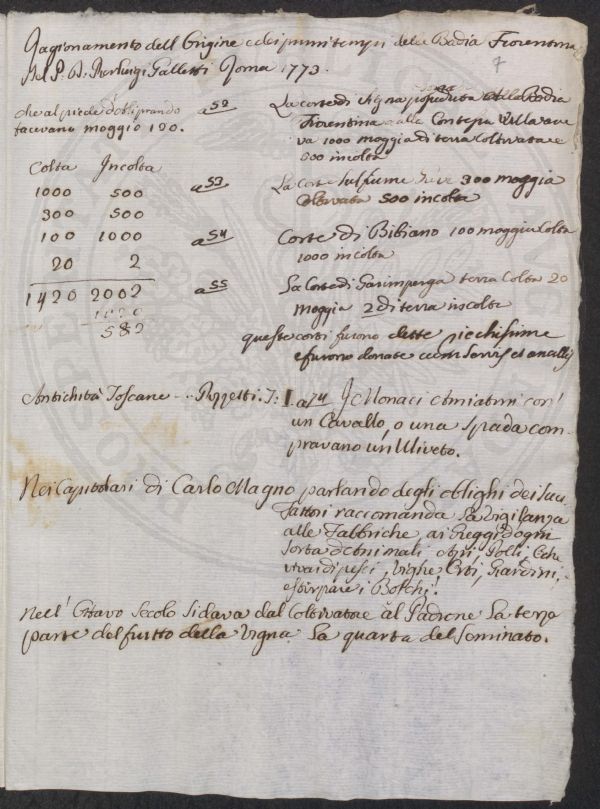 Ragionamento dell'Origine e dei primi tempi della Badia Fiorentina
del P. D. Pierluigi Galletti Roma 1773.
7
che al piede d'oliprando
facevano moggio 120.
a 52
La corte di Agna posseduta dalla Badia
Fiorentina e alle Contessa Willa ave
va 1000 moggia di terra Coltivata e
500 incolta
Colta Incolta
1000 500
300 500
100 1000
20 2
1420 2002
1420
582
a 53
La Corte sul fiume 300 moggia
Coltivata 500 incolta
a 54
Corte di Bibiano 100 moggia Colta
1000 incolta
a 55
La Corte di Garimperga terra Colta 20
moggia 2 di terra incolta
queste corti furono dette ricchissime
e furono donate cum servis et ancillis
Antichità Toscane -- Pozzetti. T: I. a 74 I Monaci Amiatini con
un Cavallo, o una Spada com-
pravano un Uliveto.
Nei Capitolari di Carlo Magno parlando degli oblighi dei suci
Fattori raccomanda la vigilanza
alle Fabbriche, ai Greggi d'ogni
sorta d'Animali, Polli,
vivai di pesci, Vighe Orti, Giardini,
estirpare i Boschi.
Nell' Ottavo Secolo si dava dal Coltivatore al Padrone La terza
parte del frutto della Vigna La quarta del Seminato.